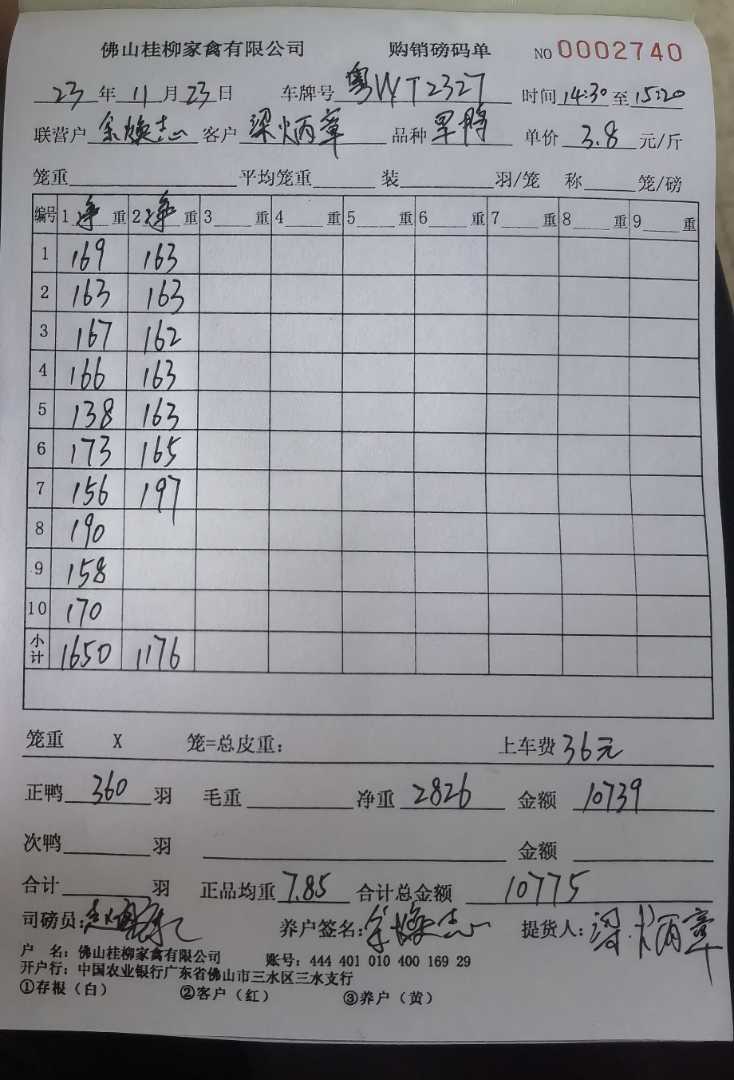 佛山桂柳家禽有限公司 购销磅码单 NO 0002740
23年11月23日 车牌号 粤WT2327 时间14:30至15:20
联营户 余焕志 客户 梁炳章 品种 单价 3.8 元/斤
笼重 平均笼重 装 羽/笼 称 笼/磅
编号 1净重 2净重 3 重 4 重 5 重 6 重 7 重 8 重 9 重
1 169 163
2 163 163
3 167 162
4 166 163
5 138 163
6 173 165
7 156 197
8 190
9 158
10 170
小计 1650 1176
笼重 X 笼=总皮重: 上车费 36元
正鸭 360 羽 毛重 净重 2826 金额 10739
次鸭 羽 金额
合计 羽 正品均重 7.85 合计总金额 10775
司磅员: 养户签名:余焕志 提货人:梁炳章
户 名:佛山桂柳家禽有限公司 账号:444 401 010 400 169 29
开户行:中国农业银行广东省佛山市三水区三水支行
①存根(白) ②客户(红) ③养户(黄)